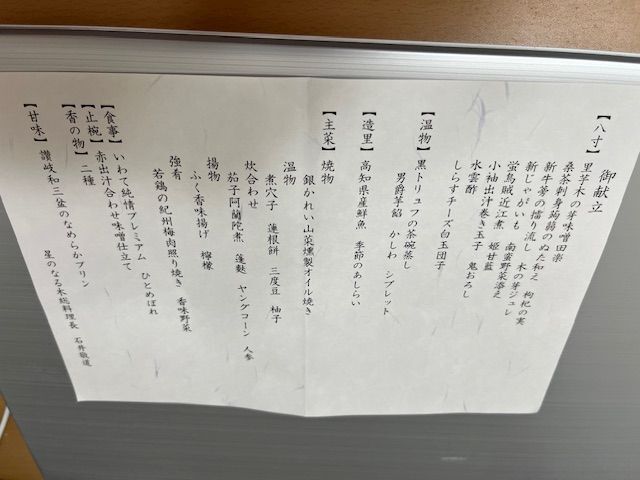 御献立
【八寸】
里芋木の芽味噌田楽
桑茶刺身蒟蒻のぬた和え 枸杞の実
新牛蒡の擂り流し 木の芽ジュレ
新じゃがいも 南蛮野菜添え
蛍烏賊近江煮 姫甘藍
小袖出汁巻き玉子 鬼おろし
水雲酢
しらすチーズ白玉団子
【温物】
黒トリュフの茶碗蒸し
男爵芋餡 かしわ シブレット
【造里】
高知県産鮮魚 季節のあしらい
【主菜】
焼物
銀かれい山菜燻製オイル焼き
温物
煮穴子 蓮根餅 三度豆 柚子
炊合わせ
茄子阿蘭陀煮 蓬麩 ヤングコーン 人参
揚物
ふく香味揚げ 檸檬
強肴
若鶏の紀州梅肉照り焼き 香味野菜
【食事】
いわて純情プレミアム ひとめぼれ
【止椀】
赤出汁合わせ味噌仕立て
【香の物】
二種
【甘味】
讃岐和三盆のなめらかプリン
星のなる木総料理長 石井敬道